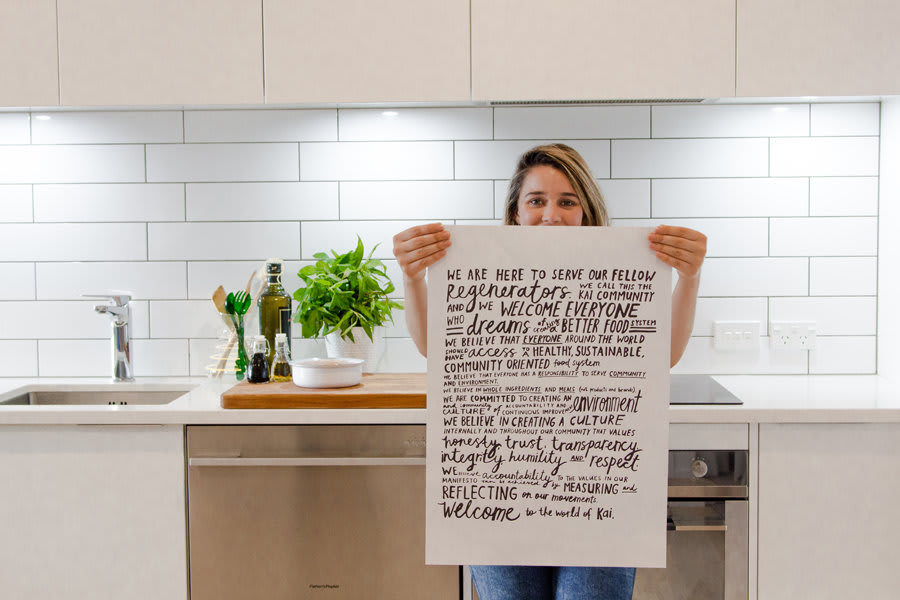 WE ARE HERE TO SERVE OUR FELLOW
Regenerators. WE CALL THIS THE KAI COMMUNITY
AND WE WELCOME EVERYONE
WHO dreams of BETTER FOOD SYSTEM
WE BELIEVE THAT EVERYONE AROUND THE WORLD
SHOULD HAVE access TO HEALTHY, SUSTAINABLE,
COMMUNITY ORIENTED food system
WE BELIEVE THAT EVERYONE HAS A RESPONSIBILITY TO SERVE COMMUNITY
AND ENVIRONMENT.
WE BELIEVE IN WHOLE INGREDIENTS AND MEALS (not products and brands).
WE ARE COMMITTED TO CREATING AN environment
and community of ACCOUNTABILITY AND
CULTURE of CONTINUOUS IMPROVEMENT
WE BELIEVE IN CREATING A CULTURE
INTERNALLY AND THROUGHOUT OUR COMMUNITY THAT VALUES
honesty, trust, transparency
integrity humility AND respect.
WE believe accountability TO THE VALUES IN OUR
MANIFESTO can be achieved by MEASURING and
REFLECTING on our movements.
Welcome to the world of Kai.
Fisher & Paykel